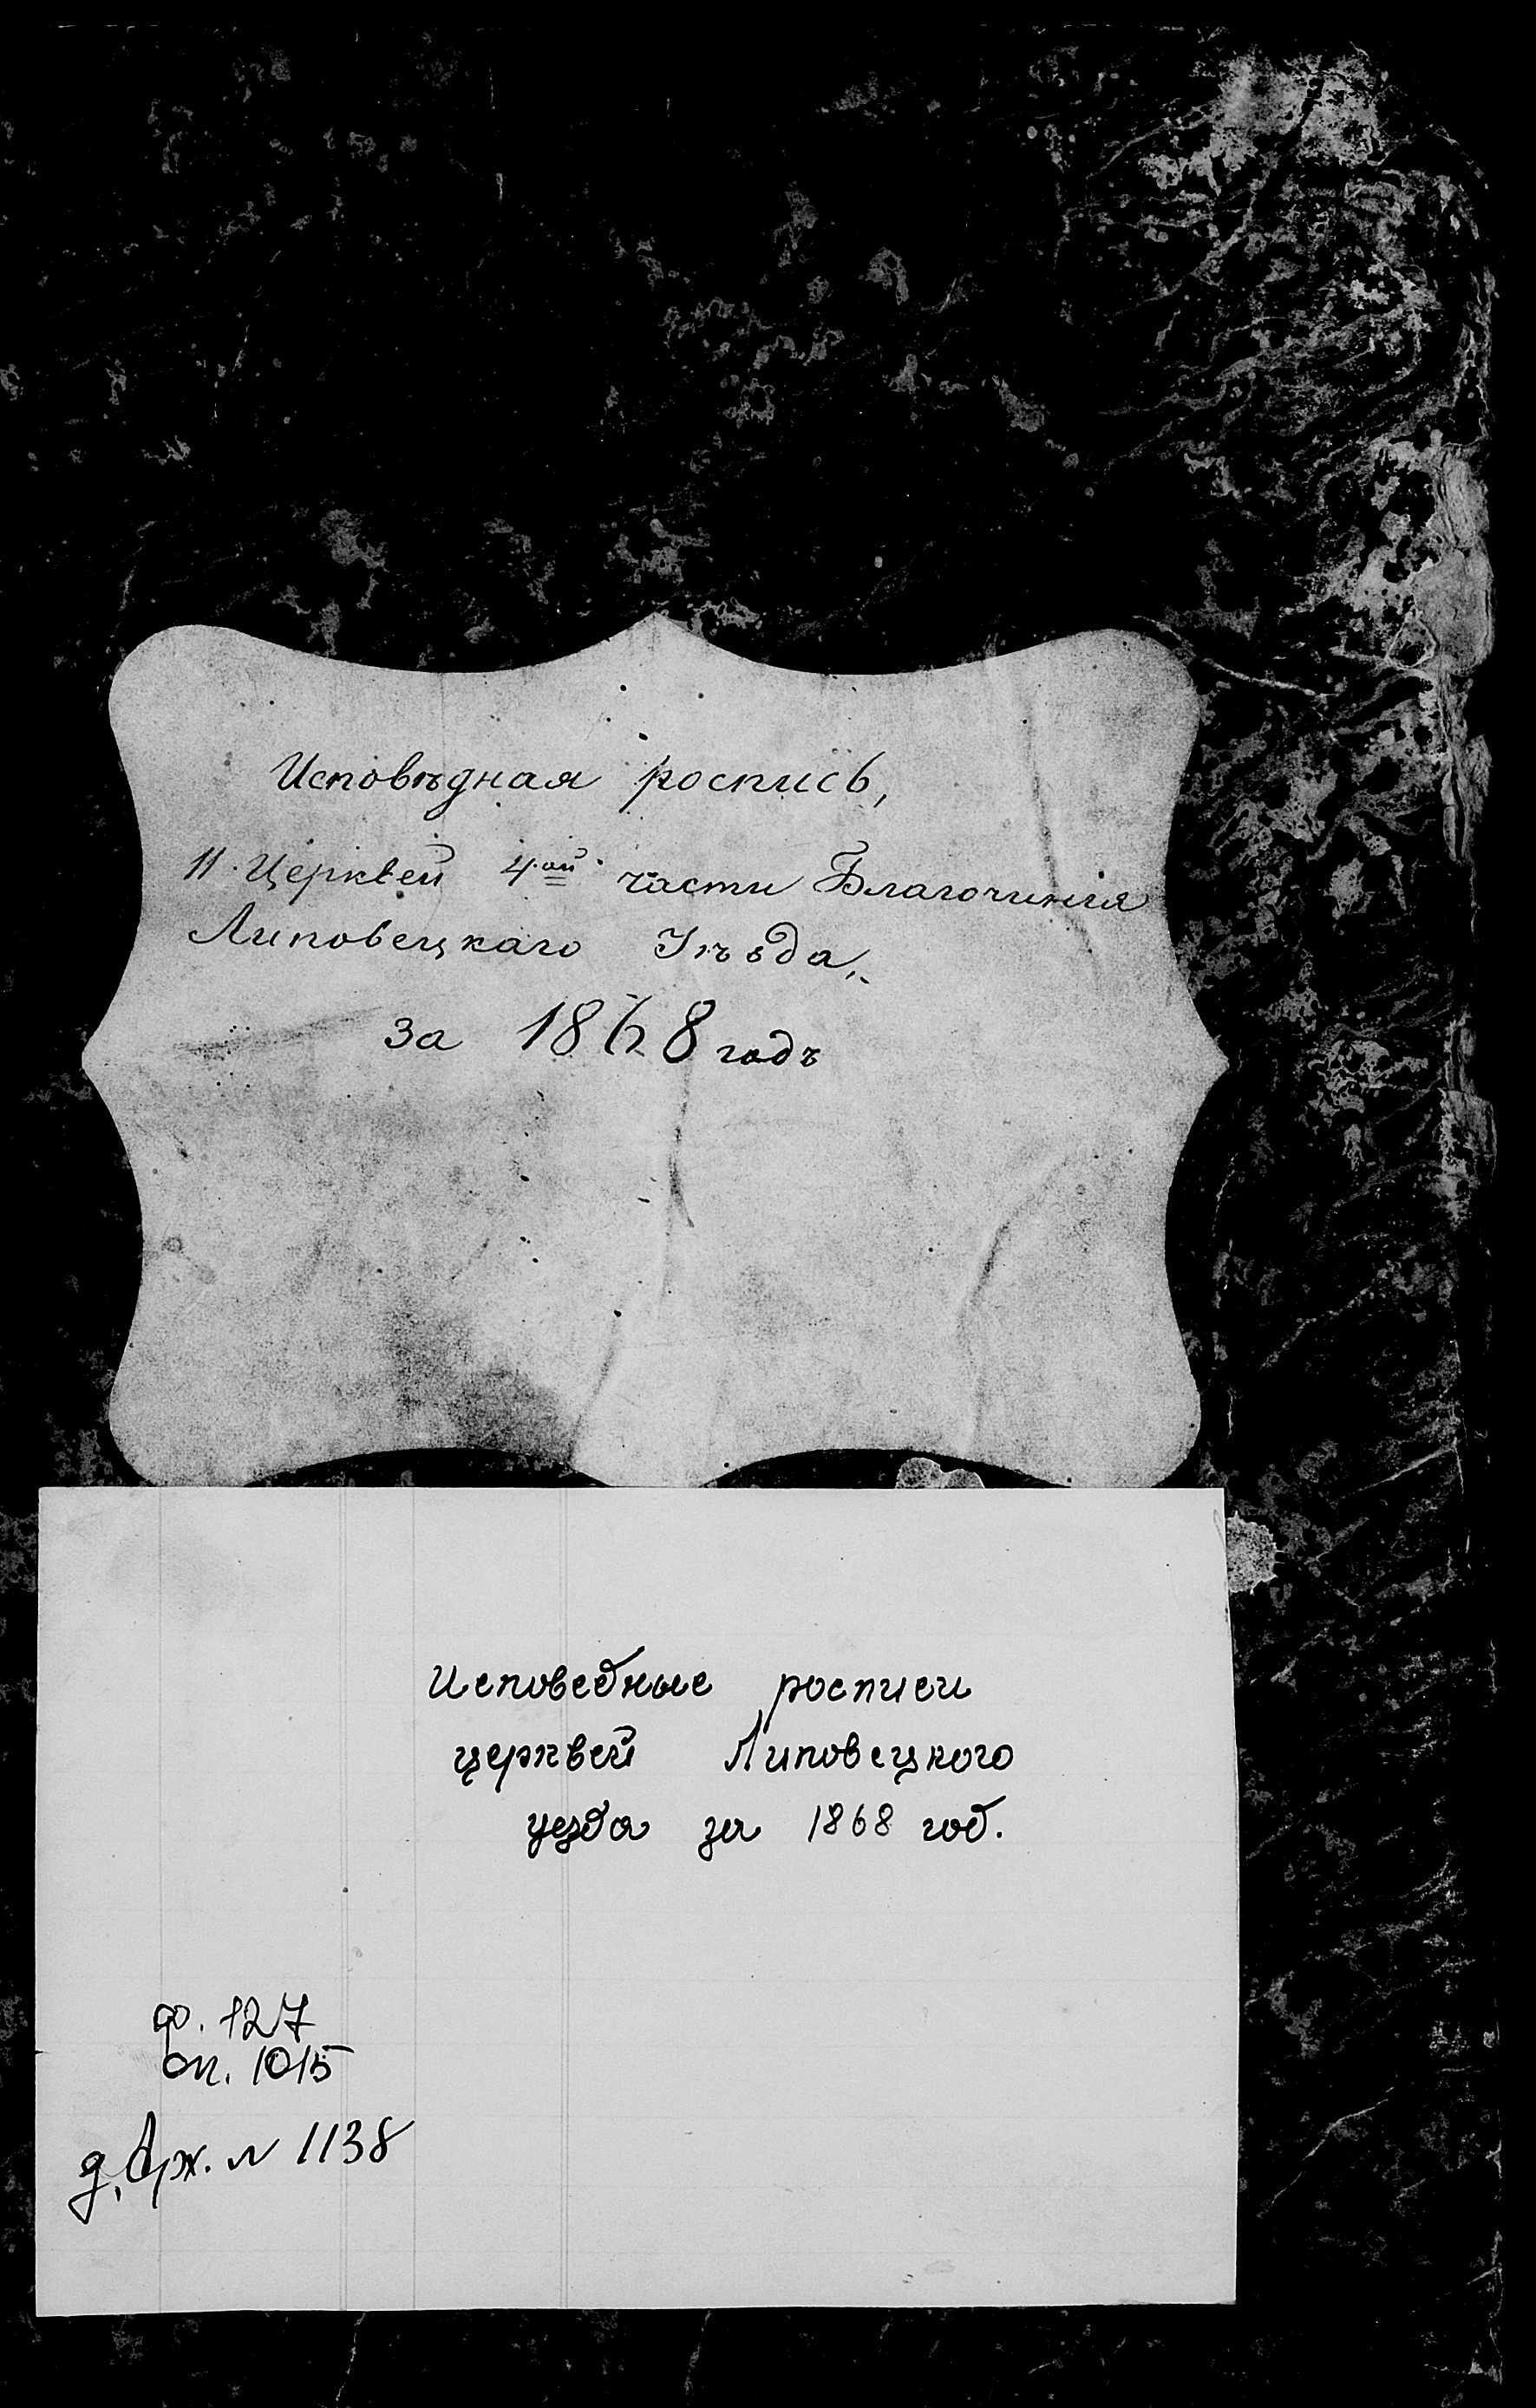 Исповѣдная роспись,
11. Церквей 4.ой части Благочинія
Липовецкаго Уѣзда,
за 1868 годъ
Исповедные росписи
церквей Липовецкого
уезда за 1868 год.
ф. 127
оп. 1015
д. Арх. N 1138